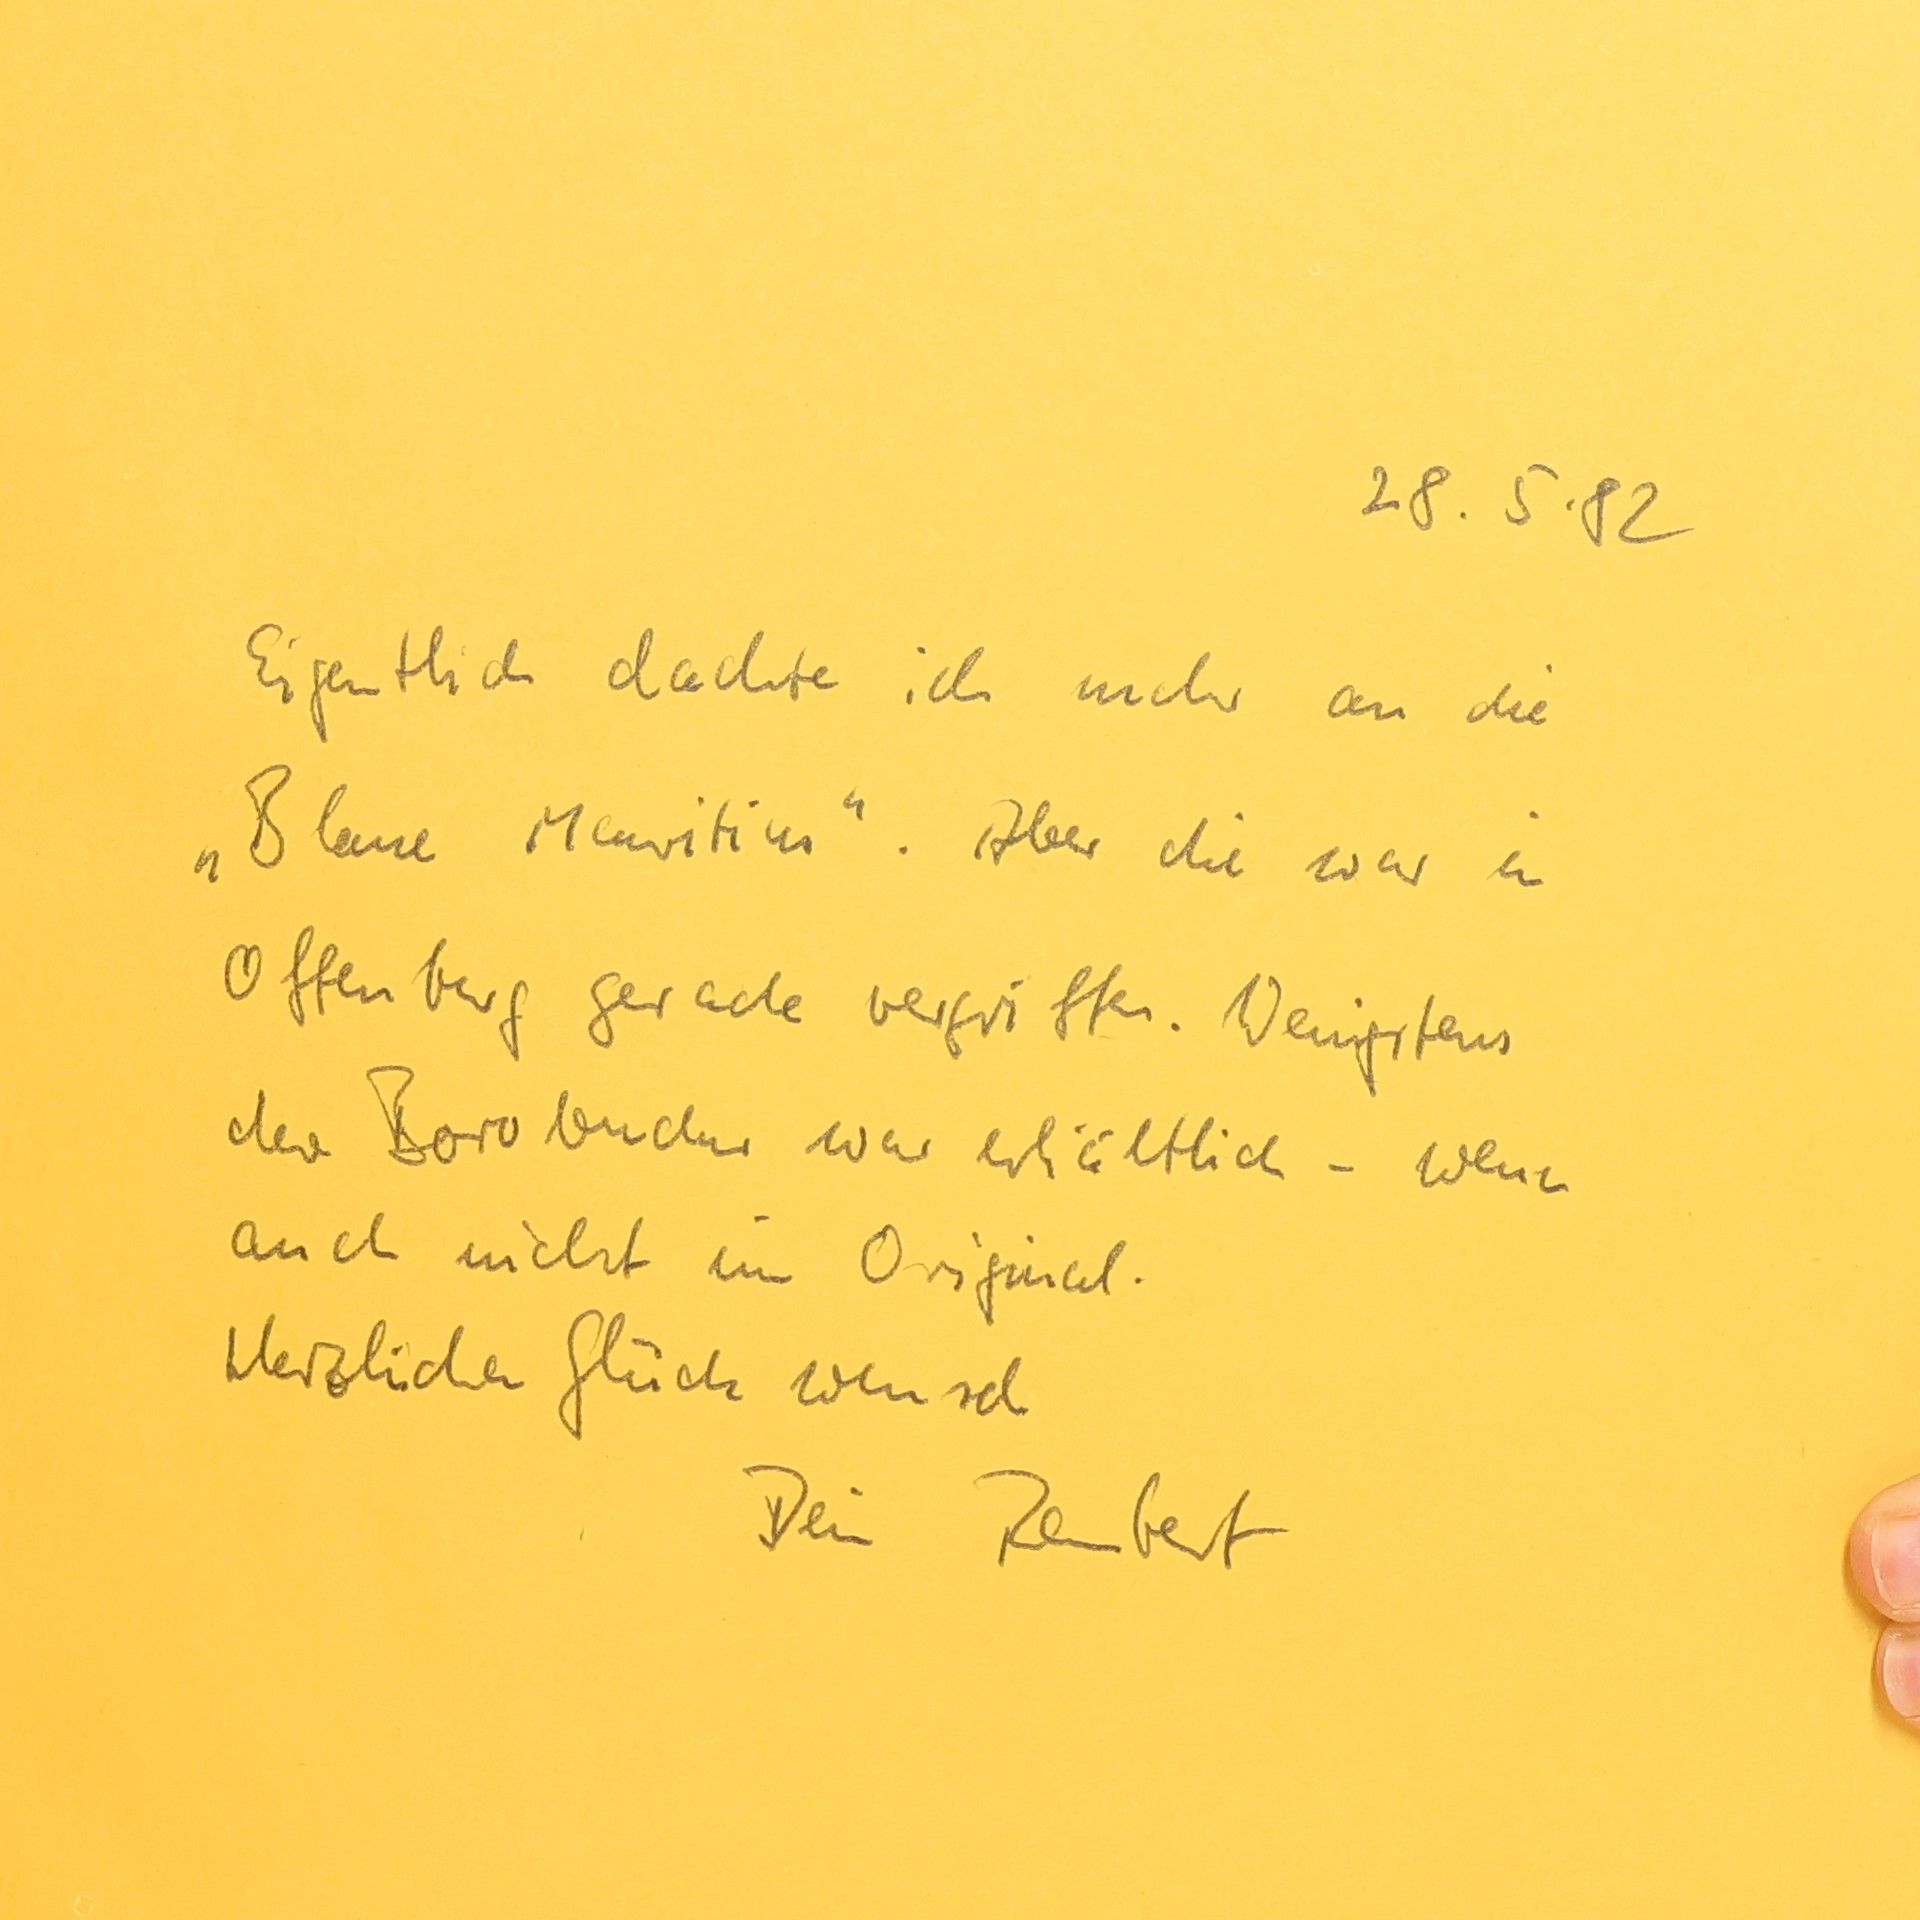 28. 5. 82
Eigentlich dachte ich mehr an die
„Blaue Mauritius“. Aber die war in
Offenburg gerade vergriffen. Wenigstens
der Borobudur war erhältlich - wenn
auch nicht im Original.
Herzlichen Glückwunsch
Dein Rembert